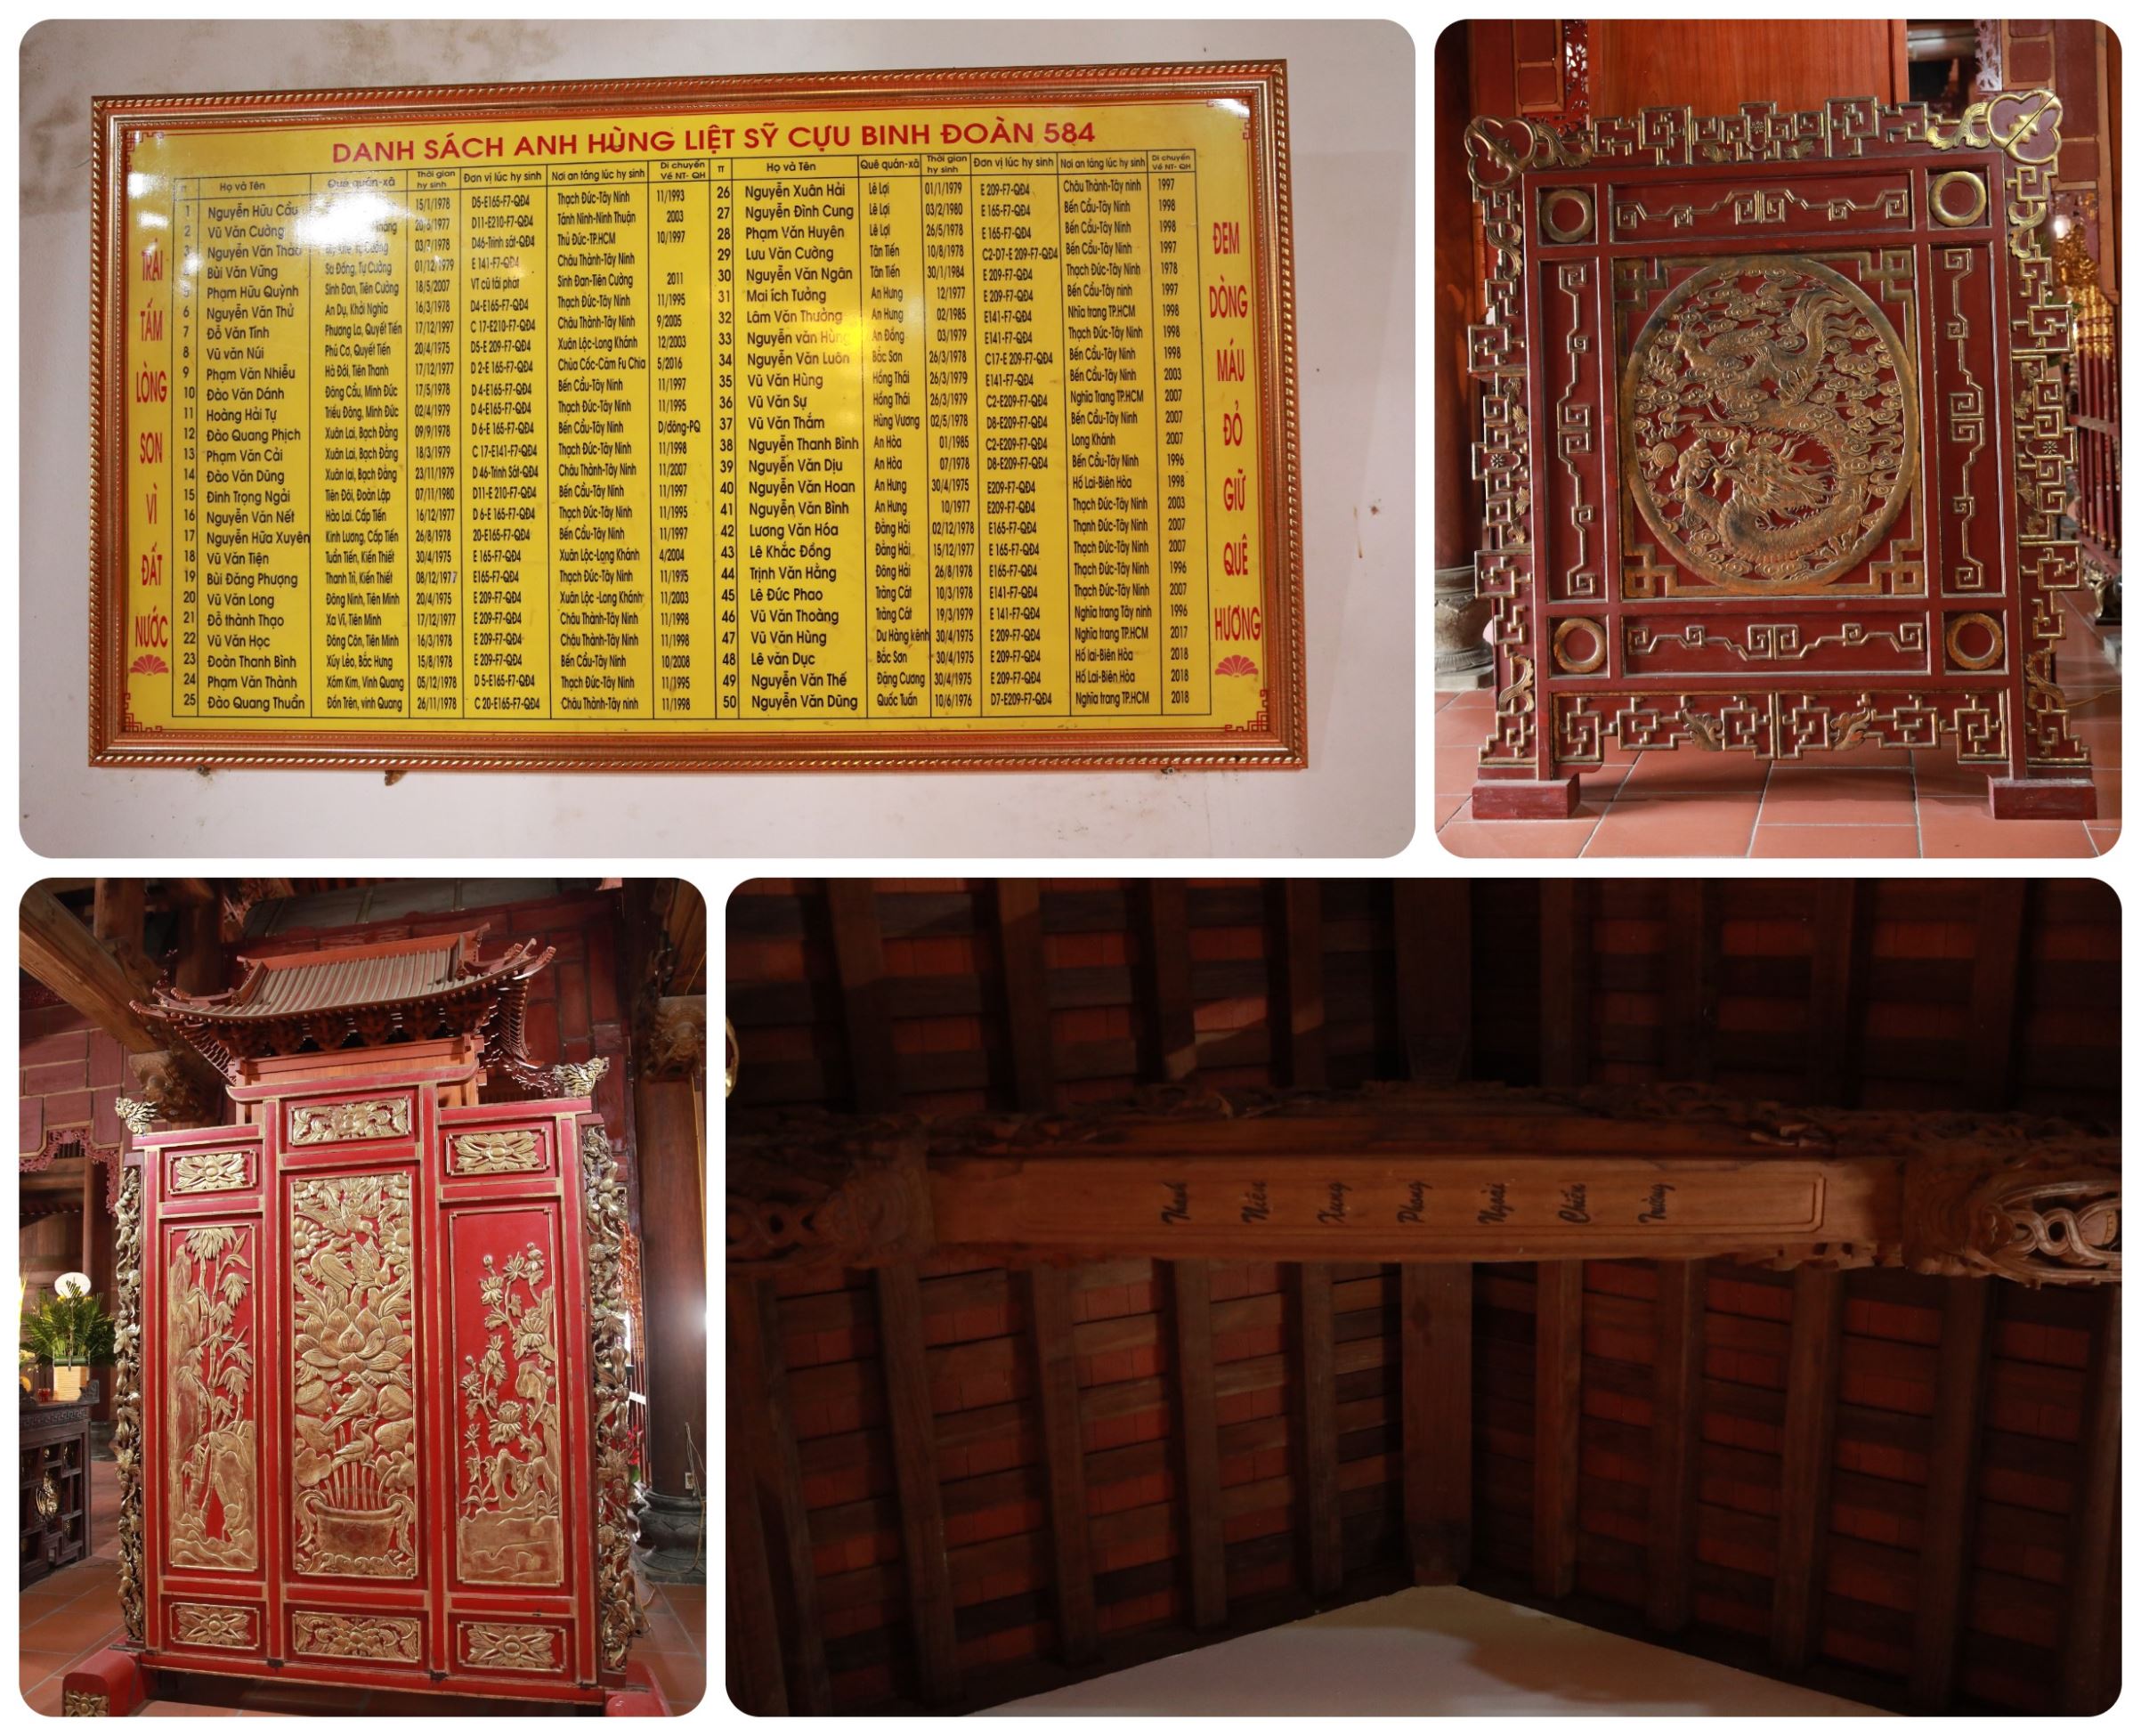 DANH SÁCH ANH HÙNG LIỆT SỸ CỰU BINH ĐOÀN 584
TRẢI
TẤM
LÒNG
SON
VÌ
ĐẤT
NƯỚC
TT Họ và Tên Quê quán-xã Thời gian hy sinh Đơn vị lúc hy sinh Nơi an táng lúc hy sinh Di chuyển Về NT- QH
1 Nguyễn Hữu Cầu 15/1/1978 D5-E165-F7-QĐ4 Thạch Đức-Tây Ninh 11/1993
2 Vũ Văn Cường D11-E210-F7-QĐ4 Tánh Ninh-Ninh Thuận 2003
3 Nguyễn Văn Thảo D46-Trinh sát-QĐ4 Thủ Đức-TP.HCM 10/1997
4 Bùi Văn Vững Sa Đống, Tự Cường 01/12/1979 E 141-F7-QĐ4 Châu Thành-Tây Ninh
5 Phạm Hữu Quỳnh Sinh Đan, Tiên Cường 18/5/2007 VT cũ tái phát Sinh Đan-Tiên Cường 2011
6 Nguyễn Văn Thử An Dụ, Khởi Nghĩa 16/3/1978 D4-E165-F7-QĐ4 Thạch Đức-Tây Ninh 11/1995
7 Đỗ Văn Tính Phương La, Quyết Tiến 17/12/1997 C 17-E210-F7-QĐ4 Châu Thành-Tây Ninh 9/2005
8 Vũ văn Núi Phú Cơ, Quyết Tiến 20/4/1975 D5-E 209-F7-QĐ4 Xuân Lộc-Long Khánh 12/2003
9 Phạm Văn Nhiễu Hà Đới, Tiên Thanh 17/12/1977 D 2-E 165-F7-QĐ4 Chùa Cốc-Căm Fu Chia 5/2016
10 Đào Văn Dánh Đông Cầu, Minh Đức 17/5/1978 D 4-E165-F7-QĐ4 Bến Cầu-Tây Ninh 11/1997
11 Hoàng Hải Tự Triều Đông, Minh Đức 02/4/1979 D 4-E165-F7-QĐ4 Thạch Đức-Tây Ninh 11/1995
12 Đào Quang Phịch Xuân Lai, Bạch Đằng 09/9/1978 D 6-E 165-F7-QĐ4 Bến Cầu-Tây Ninh D/đông-PQ
13 Phạm Văn Cải Xuân Lai, Bạch Đằng 18/3/1979 C 17-E141-F7-QĐ4 Thạch Đức-Tây Ninh 11/1998
14 Đào Văn Dũng Xuân lai, Bạch Đằng 23/11/1979 D 46-Trinh Sát-QĐ4 Châu Thành-Tây Ninh 11/2007
15 Đinh Trọng Ngải Tiên Đôi, Đoàn Lập 07/11/1980 D11-E 210-F7-QĐ4 Bến Cầu-Tây Ninh 11/1997
16 Nguyễn Văn Nết Hào Lai. Cấp Tiến 16/12/1977 D 6-E 165-F7-QĐ4 Thạch Đức-Tây Ninh 11/1995
17 Nguyễn Hữa Xuyên Kinh Lương, Cấp Tiến 26/8/1978 20-E165-F7-QĐ4 Bến Cầu-Tây Ninh 11/1997
18 Vũ Văn Tiện Tuần Tiến, Kiến Thiết 30/4/1975 E 165-F7-QĐ4 Xuân Lộc-Long Khánh 4/2004
19 Bùi Đăng Phượng Thanh Trì, Kiến Thiết 08/12/1977 E165-F7-QĐ4 Thạch Đức-Tây Ninh 11/1995
20 Vũ Văn Long Đông Ninh, Tiên Minh 20/4/1975 E 209-F7-QĐ4 Xuân Lộc -Long Khánh 11/2003
21 Đỗ thành Thạo Xa Vĩ, Tiên Minh 17/12/1977 E 209-F7-QĐ4 Châu Thành-Tây Ninh 11/1998
22 Vũ Văn Học Đông Côn, Tiên Minh 16/3/1978 E 209-F7-QĐ4 Châu Thành-Tây Ninh 11/1998
23 Đoàn Thanh Bình Xúy Lẻo, Bắc Hưng 15/8/1978 E 209-F7-QĐ4 Bến Cầu-Tây Ninh 10/2008
24 Phạm Văn Thành Xóm Kim, Vinh Quang 05/12/1978 D 5-E165-F7-QĐ4 Thạch Đức-Tây Ninh 11/1995
25 Đào Quang Thuấn Đồn Trên, vinh Quang 26/11/1978 C 20-E165-F7-QĐ4 Châu Thành-Tây ninh 11/1998
TT Họ và Tên Quê quán-xã Thời gian hy sinh Đơn vị lúc hy sinh Nơi an táng lúc hy sinh Di chuyển Về NT- QH
26 Nguyễn Xuân Hải Lê Lợi 01/1/1979 E 209-F7-QĐ4 Châu Thành-Tây ninh 1997
27 Nguyễn Đình Cung Lê Lợi 03/2/1980 E 165-F7-QĐ4 Bến Cầu-Tây Ninh 1998
28 Phạm Văn Huyên Lê Lợi 26/5/1978 E 165-F7-QĐ4 Bến Cầu-Tây Ninh 1998
29 Lưu Văn Cường Tân Tiến 10/8/1978 C2-D7-E 209-F7-QĐ4 Bến Cầu-Tây Ninh 1997
30 Nguyễn Văn Ngân Tân Tiến 30/1/1984 E 209-F7-QĐ4 Thạch Đức-Tây Ninh 1978
31 Mai ích Tưởng An Hưng 12/1977 E 209-F7-QĐ4 Bến Cầu-Tây ninh 1997
32 Lâm Văn Thưởng An Hưng 02/1985 E141-F7-QĐ4 Nhĩa trang TP.HCM 1998
33 Nguyễn văn Hùng An Đồng 03/1979 E141-F7-QĐ4 Thạch Đức-Tây Ninh 1998
34 Nguyễn Văn Luôn Bắc Sơn 26/3/1978 C17-E 209-F7-QĐ4 Bến Cầu-Tây Ninh 1998
35 Vũ Văn Hùng Hồng Thái 26/3/1979 E141-F7-QĐ4 Bến Cầu-Tây Ninh 2003
36 Vũ Văn Sự Hồng Thái 26/3/1979 C2-E209-F7-QĐ4 Nghĩa Trang TP.HCM 2007
37 Vũ Văn Thắm Hùng Vương 02/5/1978 D8-E209-F7-QĐ4 Bến Cầu-Tây Ninh 2007
38 Nguyễn Thanh Bình An Hòa 01/1985 C2-E209-F7-QĐ4 Long Khánh 2007
39 Nguyễn Văn Dịu An Hòa 07/1978 D8-E209-F7-QĐ4 Bến Cầu-Tây Ninh 1996
40 Nguyễn Văn Hoan An Hưng 30/4/1975 E209-F7-QĐ4 Hố Lai-Biên Hòa 1998
41 Nguyễn Văn Bình An Hưng 10/1977 E209-F7-QĐ4 Thạch Đức-Tây Ninh 2003
42 Lương Văn Hóa Đằng Hải 02/12/1978 E165-F7-QĐ4 Thạnh Đức-Tây Ninh 2007
43 Lê Khắc Đồng Đằng Hải 15/12/1977 E 165-F7-QĐ4 Thạch Đức-Tây Ninh 2007
44 Trịnh Văn Hằng Đông Hải 26/8/1978 E165-F7-QĐ4 Thạch Đức-Tây Ninh 1996
45 Lê Đức Phao Tràng Cát 10/3/1978 E141-F7-QĐ4 Thạch Đức-Tây Ninh 2007
46 Vũ Văn Thoàng Tràng Cát 19/3/1979 E 141-F7-QĐ4 Nghĩa trang Tây ninh 1996
47 Vũ Văn Hùng Dư Hàng kênh 30/4/1975 E 209-F7-QĐ4 Nghĩa trang TP.HCM 2017
48 Lê văn Dục Bắc Sơn 30/4/1975 E 209-F7-QĐ4 Hố lai-Biên Hòa 2018
49 Nguyễn Văn Thế Đặng Cương 30/4/1975 E 209-F7-QĐ4 Hố Lai-Biên Hòa 2018
50 Nguyễn Văn Dũng Quốc Tuấn 10/6/1976 D7-E209-F7-QĐ4 Nghĩa trang TP.HCM 2018
ĐEM
DÒNG
MÁU
ĐỎ
GIỮ
QUÊ
HƯƠNG
Thanh
Niên
Xung
Phong
Ngoài
Chiến
Trường